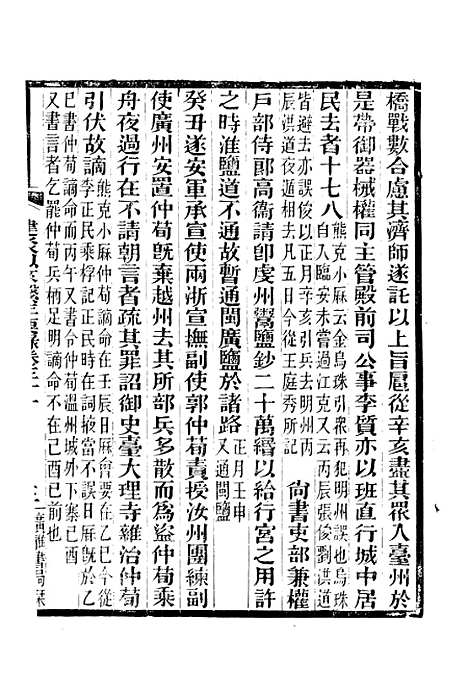 橋戰數合慮其濟師遂託以上旨扈從辛亥盡其衆入臺州於
是帶御器械權同主管殿前司公事李質亦以班直行城中居
民去者十七八熊克小厤云金烏珠引兵再犯明州誤也烏珠
自入臨安未嘗過江克又云丙辰張俊劉洪道
皆避去亦誤俊以正月辛亥引兵去明州丙
辰洪道夜遁相去凡五日今從王庭秀所記尙書吏部兼權
戸部侍郞高衞請卽虔州鬻鹽鈔二十萬緡以給行宮之用許
之時淮鹽道不通故暫通閩廣鹽於諸路正月壬申
又通閩鹽
癸丑遂安軍承宣使兩浙宣撫副使郭仲荀責授汝州團練副
使廣州安置仲荀旣棄越州去其所部兵多散而爲盜仲荀乘
舟夜過行在不請朝言者疏其罪詔御史臺大理寺雜治仲荀
引伏故謫熊克小厤在壬辰日厤要之在乙巳今從
李正民乘桴記正民時在詞掖當不誤日厤旣於乙
巳書仲荀謫命而丙午又書令仲荀溫州城外下寨己酉
又書言者乞罷仲荀兵柄足明謫命不在己酉已前也